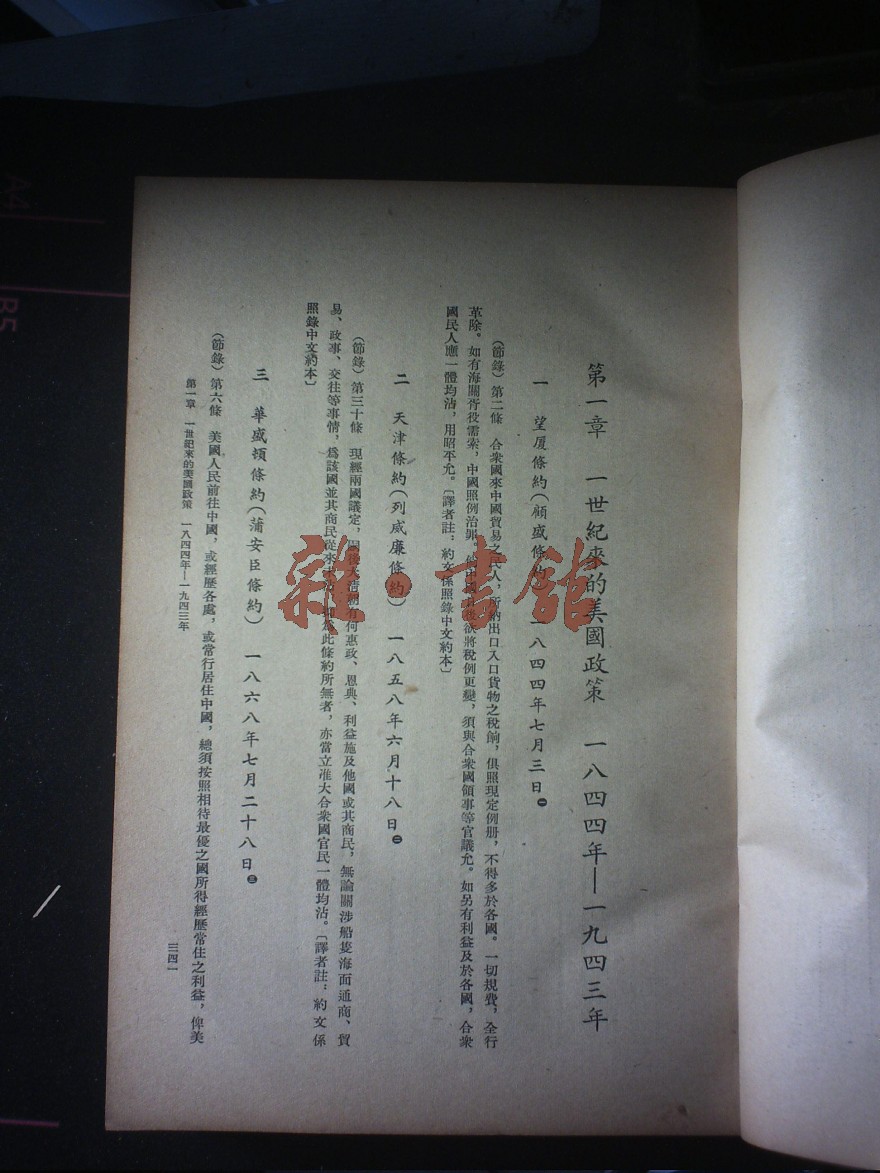 第一章　一世紀來的美國政策　一八四四年—一九四三年
一　望厦條約（顧盛條約）一八四四年七月三日㊀
（節錄）第二條　合衆國來中國貿易之民人，所納出口入口貨物之稅餉，俱照現定例册，不得多於各國。一切規費，全行
革除。如有海關胥役需索，中國照例治罪。中國日後欲將稅例更變，須與合衆國領事等官議允。如另有利益及於各國，合衆
國民人應一體均沾，用昭平允。〔譯者註：約文係照錄中文約本〕
二　天津條約（列威廉條約）一八五八年六月十八日㊁
（節錄）第三十條　現經兩國議定，嗣後大清朝有何惠政、恩典、利益施及他國或其商民，無論關涉船隻海面通商、貿
易、政事、交往等事情，爲該國並其商民從來未爲此條約所無者，亦當立准大合衆國官民一體均沾。〔譯者註：約文係
照錄中文約本〕
三　華盛頓條約（蒲安臣條約）一八六八年七月二十八日㊂
（節錄）第六條　美國人民前往中國，或經歷各處，或常行居住中國，總須按照相待最優之國所得經歷常住之利益，俾美
第一章　一世紀來的美國政策　一八四四年—一九四三年
三四一
雜·書館
A4
B5